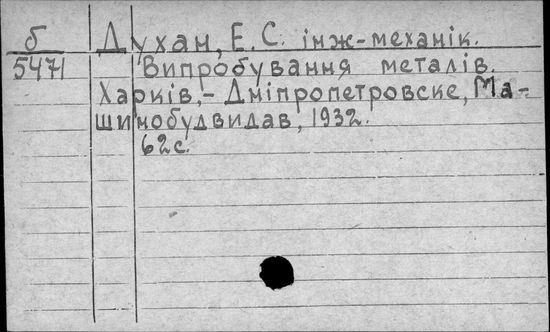 б
5471
Духан, Е.С. інж-механік.
Випробування металів.
Харків,- Дніпропетровске, Ма-
шинобудвидав, 1932.
62с.